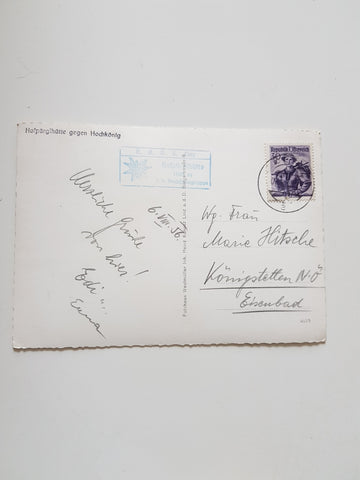 Hofpürglhütte gegen Hochkönig
Hofpürglhütte
Republik Österreich
6. VIII. 56.
Herzliche Grüße
von hier!
Edi u.
Emma
Wg. Frau
Marie Hitsche
Königstetten N.Ö
Eisenbad